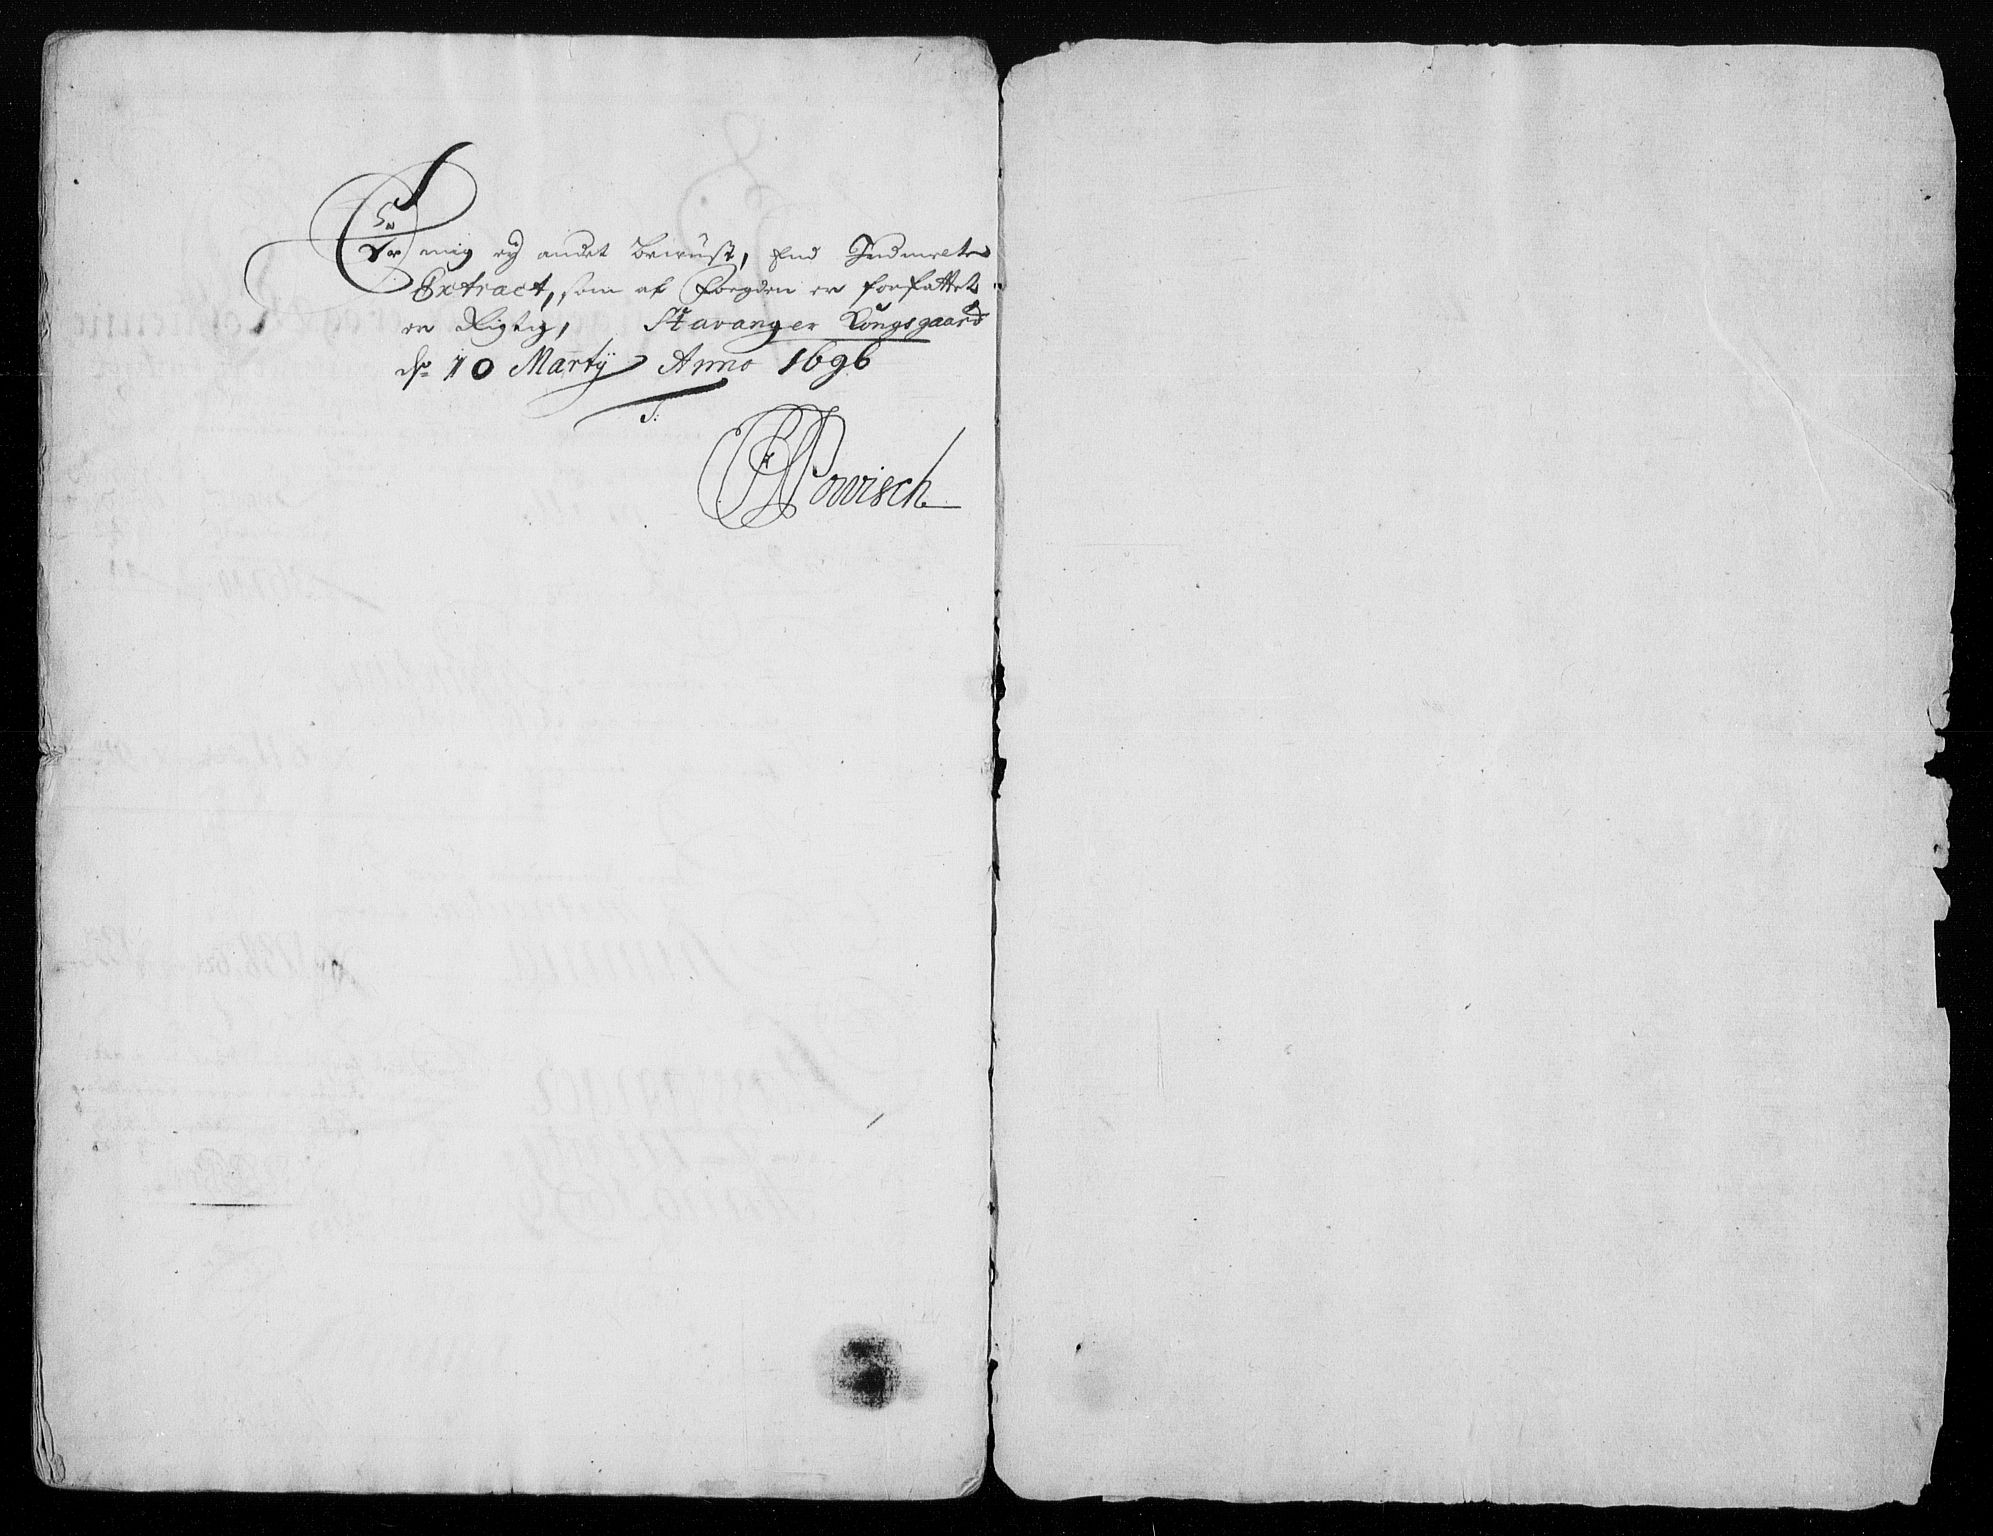 Er mig ej andet bewust, end Indmelte
Extract, som af Fogden er forfattet
er Rigtig, Stavanger Kongsgaard
dn 10 Martÿ Anno 1696
Powisch